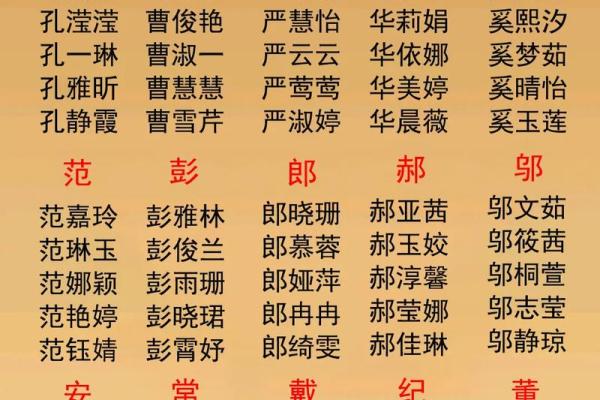 孔滢滢 曹俊艳 严慧怡 华莉娟 奚熙汐
孔一琳 曹淑一 严云云 华依娜 奚梦茹
孔雅昕 曹慧慧 严莺莺 华美婷 奚晴怡
孔静霞 曹雪芹 严淑婷 华晨薇 奚玉莲
范 彭 郎 郝 邬
范嘉玲 彭雅林 郎晓珊 郝亚茜 邬文茹
范琳玉 彭俊兰 郎慕蓉 郝玉姣 邬筱茜
范娜颖 彭雨珊 郎娅萍 郝淳馨 邬桐萱
范艳婷 彭晓珺 郎冉冉 郝莹娜 邬志莹
范钰婧 彭霄妤 郎绮雯 郝佳琳 邬静琼
安 常 戴 纪 董